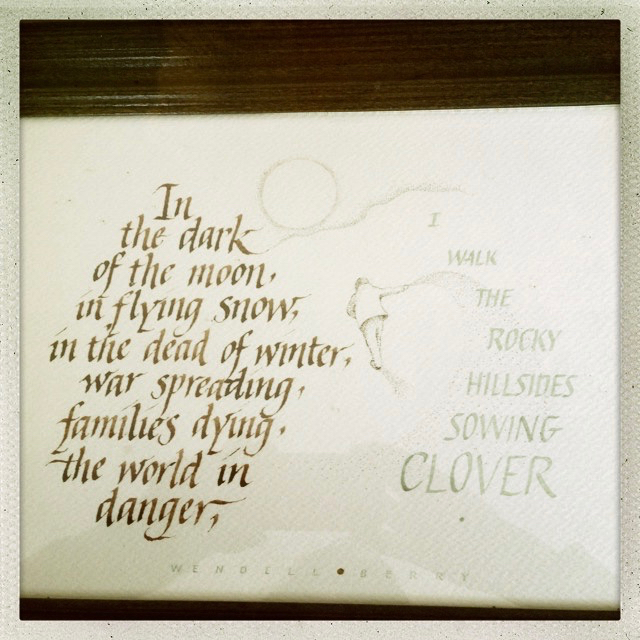 In
the dark
of the moon,
in flying snow,
in the dead of winter,
war spreading,
families dying,
the world in
danger,
I
WALK
THE
ROCKY
HILLSIDES
SOWING
CLOVER
.
WENDELL • BERRY